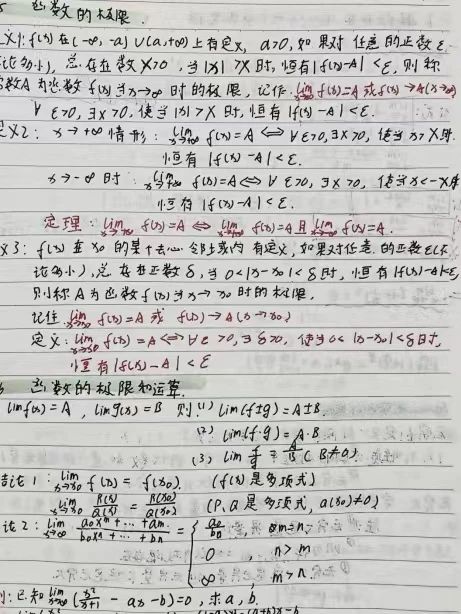 函数的极限
f(x)在(-∞,-a)∪(a,+∞)上有定义, a>0, 如果对任意的正数ε
论多小), 总存在数X>0, 当|x|>X时, 恒有|f(x)-A|<ε, 则称
常数A为函数f(x)当x→∞时的极限, 记作 lim x→∞ f(x)=A 或 f(x)→A(x→∞)
∀ε>0, ∃X>0, 使当|x|>X时, 恒有|f(x)-A|<ε.
义2: x→+∞情形: lim x→+∞ f(x)=A ⇔ ∀ε>0, ∃X>0, 使当x>X时.
恒有|f(x)-A|<ε.
x→-∞时: f(x)=A ⇔ ∀ε>0, ∃X>0, 使当x<-X时
恒有|f(x)-A|<ε.
定理: lim x→∞ f(x)=A ⇔ lim f(x)=A 且 lim f(x)=A.
义3: f(x)在x0的某个去心邻域内有定义, 如果对任意的正数ε(不
论多小), 总存在正数δ, 当0<|x-x0|<δ时, 恒有|f(x)-A|<ε,
则称A为函数f(x)当x→x0时的极限.
记住 lim x→x0 f(x)=A 或 f(x)→A(x→x0)
定义: lim x→x0 f(x)=A ⇔ ∀ε>0, ∃δ>0, 使当0<|x-x0|<δ时,
恒有|f(x)-A|<ε
函数的极限和运算.
limf(x)=A, limg(x)=B 则(1) lim(f±g)=A±B
(2) lim(f·g)=A·B
(3) lim f/g = A/B (B≠0)
结论1: lim x→x0 f(x)=f(x0). (f(x)是多项式)
lim x→x0 P(x)/Q(x) = P(x0)/Q(x0) (P,Q是多项式, Q(x0)≠0)
论2: lim x→∞ (a0x^m+…+am)/(b0x^n+…+bn) = { a0/b0 m=n
0 n>m
∞ m>n
例: 已知 lim x→∞ (x²/(x+1) - ax - b)=0, 求a,b.